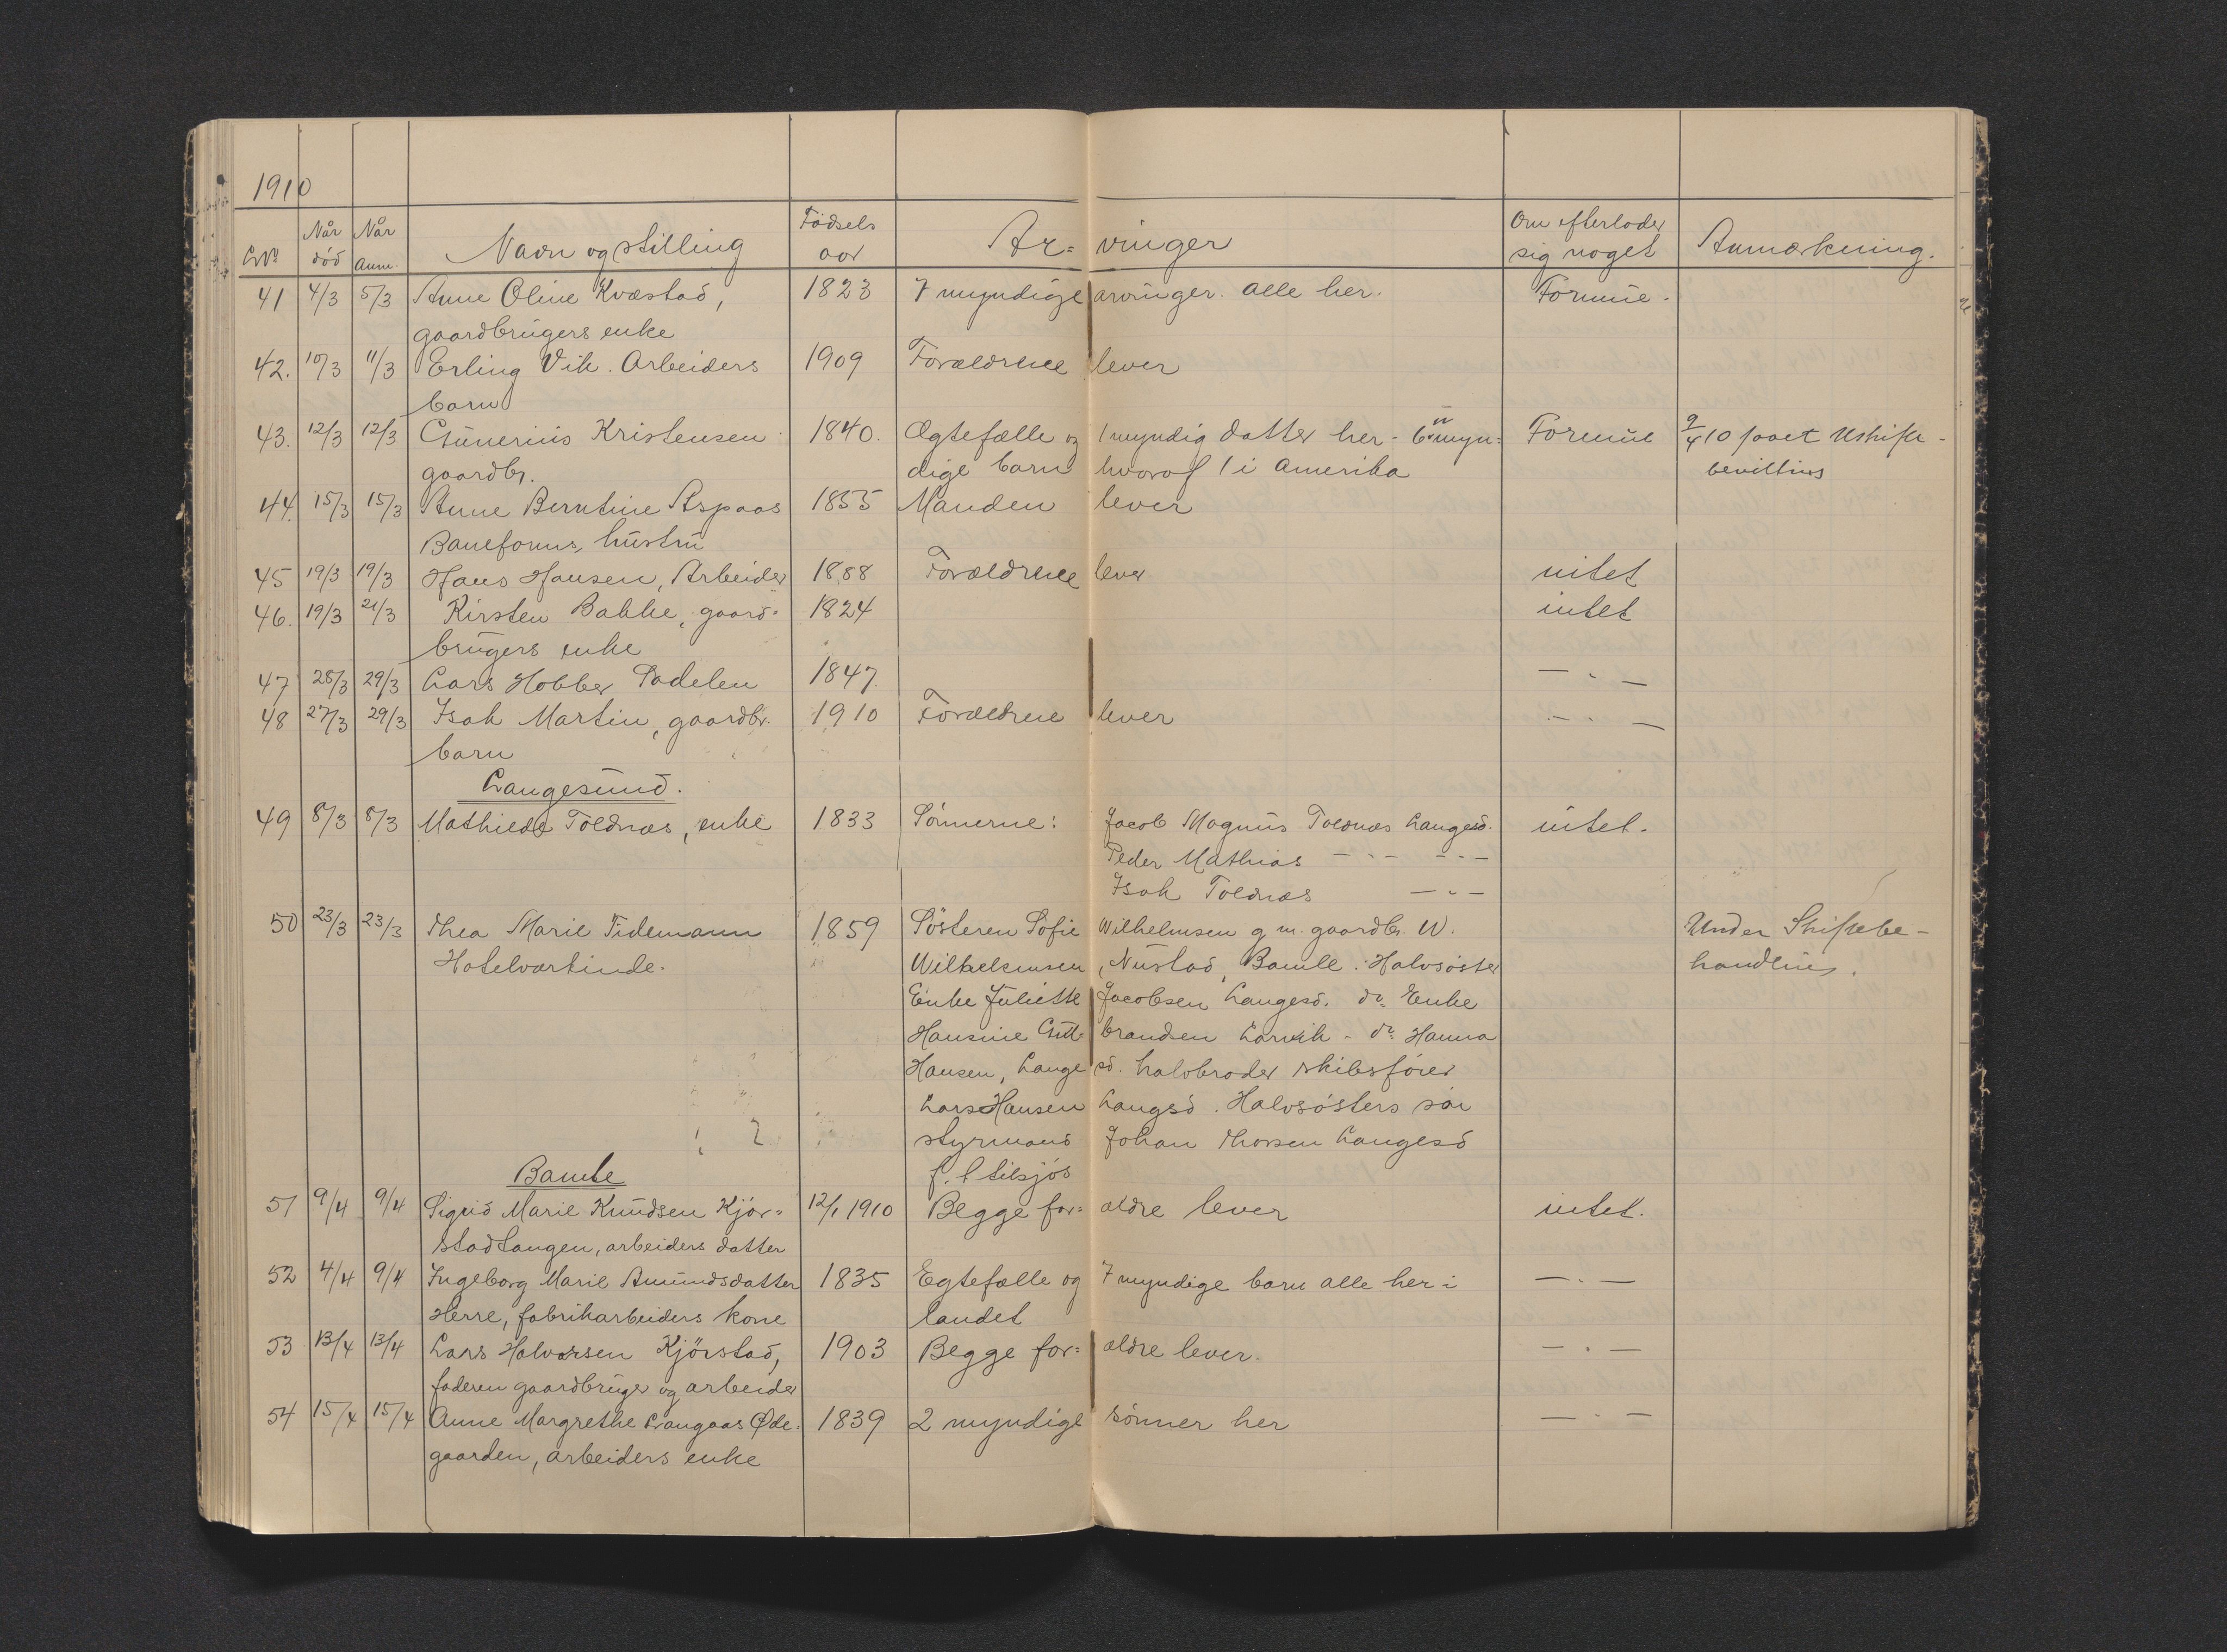 1910
LNº Når død Når Anm. Navn og stilling Födsels aar Ar= vinger Om efterlader sig noget Anmærkning.
41 4/3 5/3 Anne Oline Kvæstad, 1823 7 myndige arvinger. alle her. Formue.
gaardbrugers enke
42. 10/3 11/3 Erling Vik. Arbeiders 1909 Forældrene lever
barn
43. 12/3 12/3 Gunerius Kristensen 1840. Ægtefælle og 1 myndig datter her - 6 umyn= Formue 9/4 10 faaet Uskifte-
gaardbr. dige barn hvoraf 1 i Amerika bevilling
44. 15/3 15/3 Anne Berntine Aspaas 1855 Manden lever
Baneform. hustru
45 19/3 19/3 Hans Hansen, Arbeider 1888 Forældrene lever intet
46. 19/3 21/3 Kirsten Bakke, gaard= 1824 intet
brugers enke
47 28/3 29/3 Lars Hobber Sadelen 1847. — . —
48 27/3 29/3 Isak Martin, gaardbr. 1910 Forældrene lever — . —
barn
Langesund.
49 8/3 8/3 Mathilde Toldnæs, enke 1833 Sönnerne: Jacob Magnus Toldnæs Langesd. intet.
Peder Mathias — . — — . —
Isak Toldnæs — . —
50 23/3 23/3 Thea Marie Tidemann 1859 Sösteren Sofie Wilhelmsen g m. gaardbr. W. Under Skiftebe-
Hotelværtinde. Wilhelmsen, Nustad, Bamle. Halvsöster handling.
Enke Juliette Jacobsen Langesd. do Enke
Hansine Gul= brandsen Larvik - do Hanna
Hansen, Lange sd. halvbroder skibsförer
Lars Hansen Langsd. Halvsösters sön
styrmand Johan Thorsen Langesd
f. t tilsjös
Bamle
51 9/4 9/4 Sigrid Marie Knudsen Kjör= 12/1 1910 Begge for= ældre lever intet.
stadtangen, arbeiders datter
52 4/4 9/4 Ingeborg Marie Amundsdatter 1835 Egtefælle og 7 myndige barn alle her i — . —
Herre, fabrikarbeiders kone landet
53 13/4 13/4 Lars Halvorsen Kjörstad, 1903 Begge for= ældre lever. — . —
faderen gaardbruger og arbeider
54 15/4 15/4 Anne Margrethe Langaas Øde= 1839 2 myndige sönner her — . —
gaarden, arbeiders enke